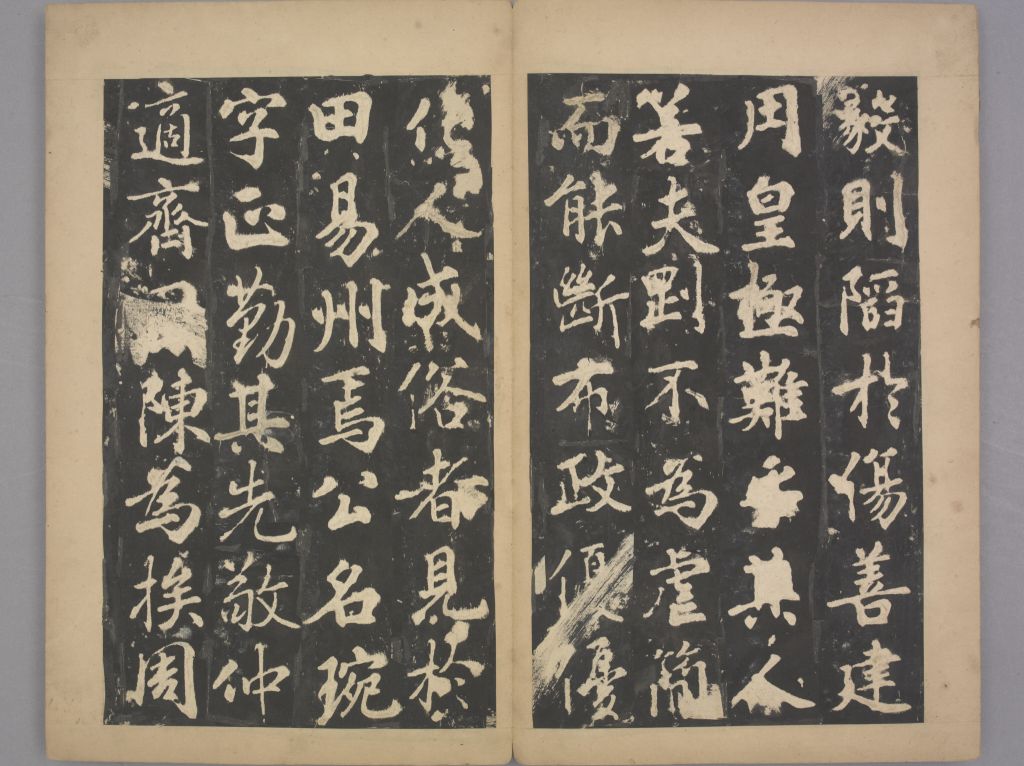 毅則陷於傷善建
用皇極難乎其人
若夫剛不為虐簡
而能斷布政優優
人成俗者見於
田易州焉公名琬
字正勤其先敬仲
適齊陳為族周